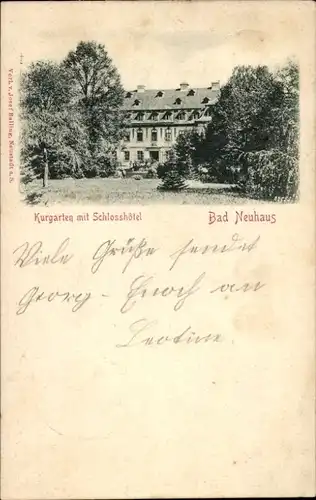 Verl. v. Josef Balling, Neustadt a. S.
Kurgarten mit Schlosshôtel Bad Neuhaus
Viele Grüße sendet
Georg - Enoch an
Leotine.